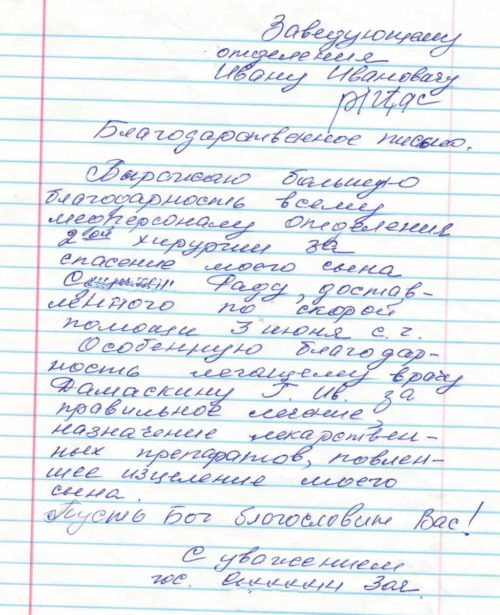 Заведующему
отделения
Ивану Ивановичу
Благодарственное письмо.
Выражаю большую
благодарность всему
медперсоналу отделения
2ой хирургии за
спасение моего сына
Раду, достав-
ленного по скорой
помощи 3 июня с.г.
Особенную благодар-
ность лечащему врачу
Дамаскину Г. Ив. за
правильное лечение,
назначение лекарствен-
ных препаратов, повлек-
шее исцеление моего
сына.
Пусть Бог благословит Вас!
С уважением
гос.